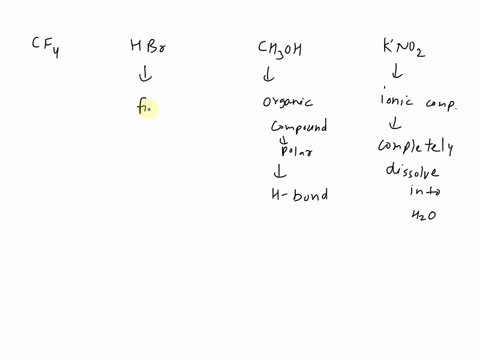 CF4 HBr CH3OH KNO2
↓ ↓ ↓
organic ionic comp.
compound ↓
↓ completely
polar dissolve
↓ into
H-bond H2O